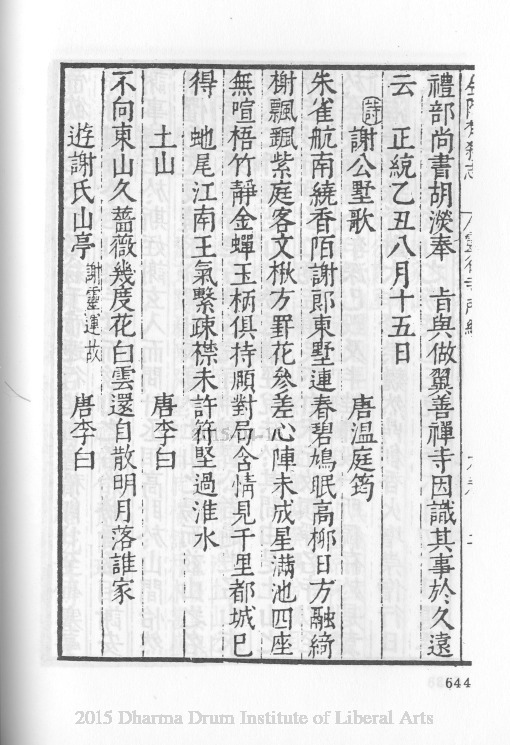 禮部尚書胡濙奉　旨與做翼善禪寺因識其事於久遠
云　正統乙丑八月十五日
詩　謝公墅歌　唐溫庭筠
朱雀航南繞香陌謝郎東墅連春碧鳩眠高柳日方融綺
榭飄颻紫庭客文楸方罫花參差心陣未成星滿池四座
無喧梧竹靜金蟬玉柄俱持頤對局含情見千里都城已
得　虵尾江南王氣繫疎襟未許符堅過淮水
土山　唐李白
不向東山久薔薇幾度花白雲還自散明月落誰家
遊謝氏山亭　謝靈運故　唐李白
644
2015 Dharma Drum Institute of Liberal Arts